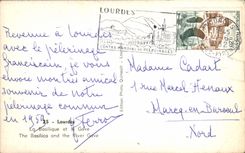 LOURDES
Revenue à Lourdes
avec le pèlerinage
franciscain, je vous
envoie mon très amical
souvenir de notre
pèlerinage commun
en 1958.
25 - Lourdes
La Basilique et le Gave
The Basilica and the River Gave
Madame Cadart
1 rue Marcel Henaux
Marcq-en-Baroeul
Nord